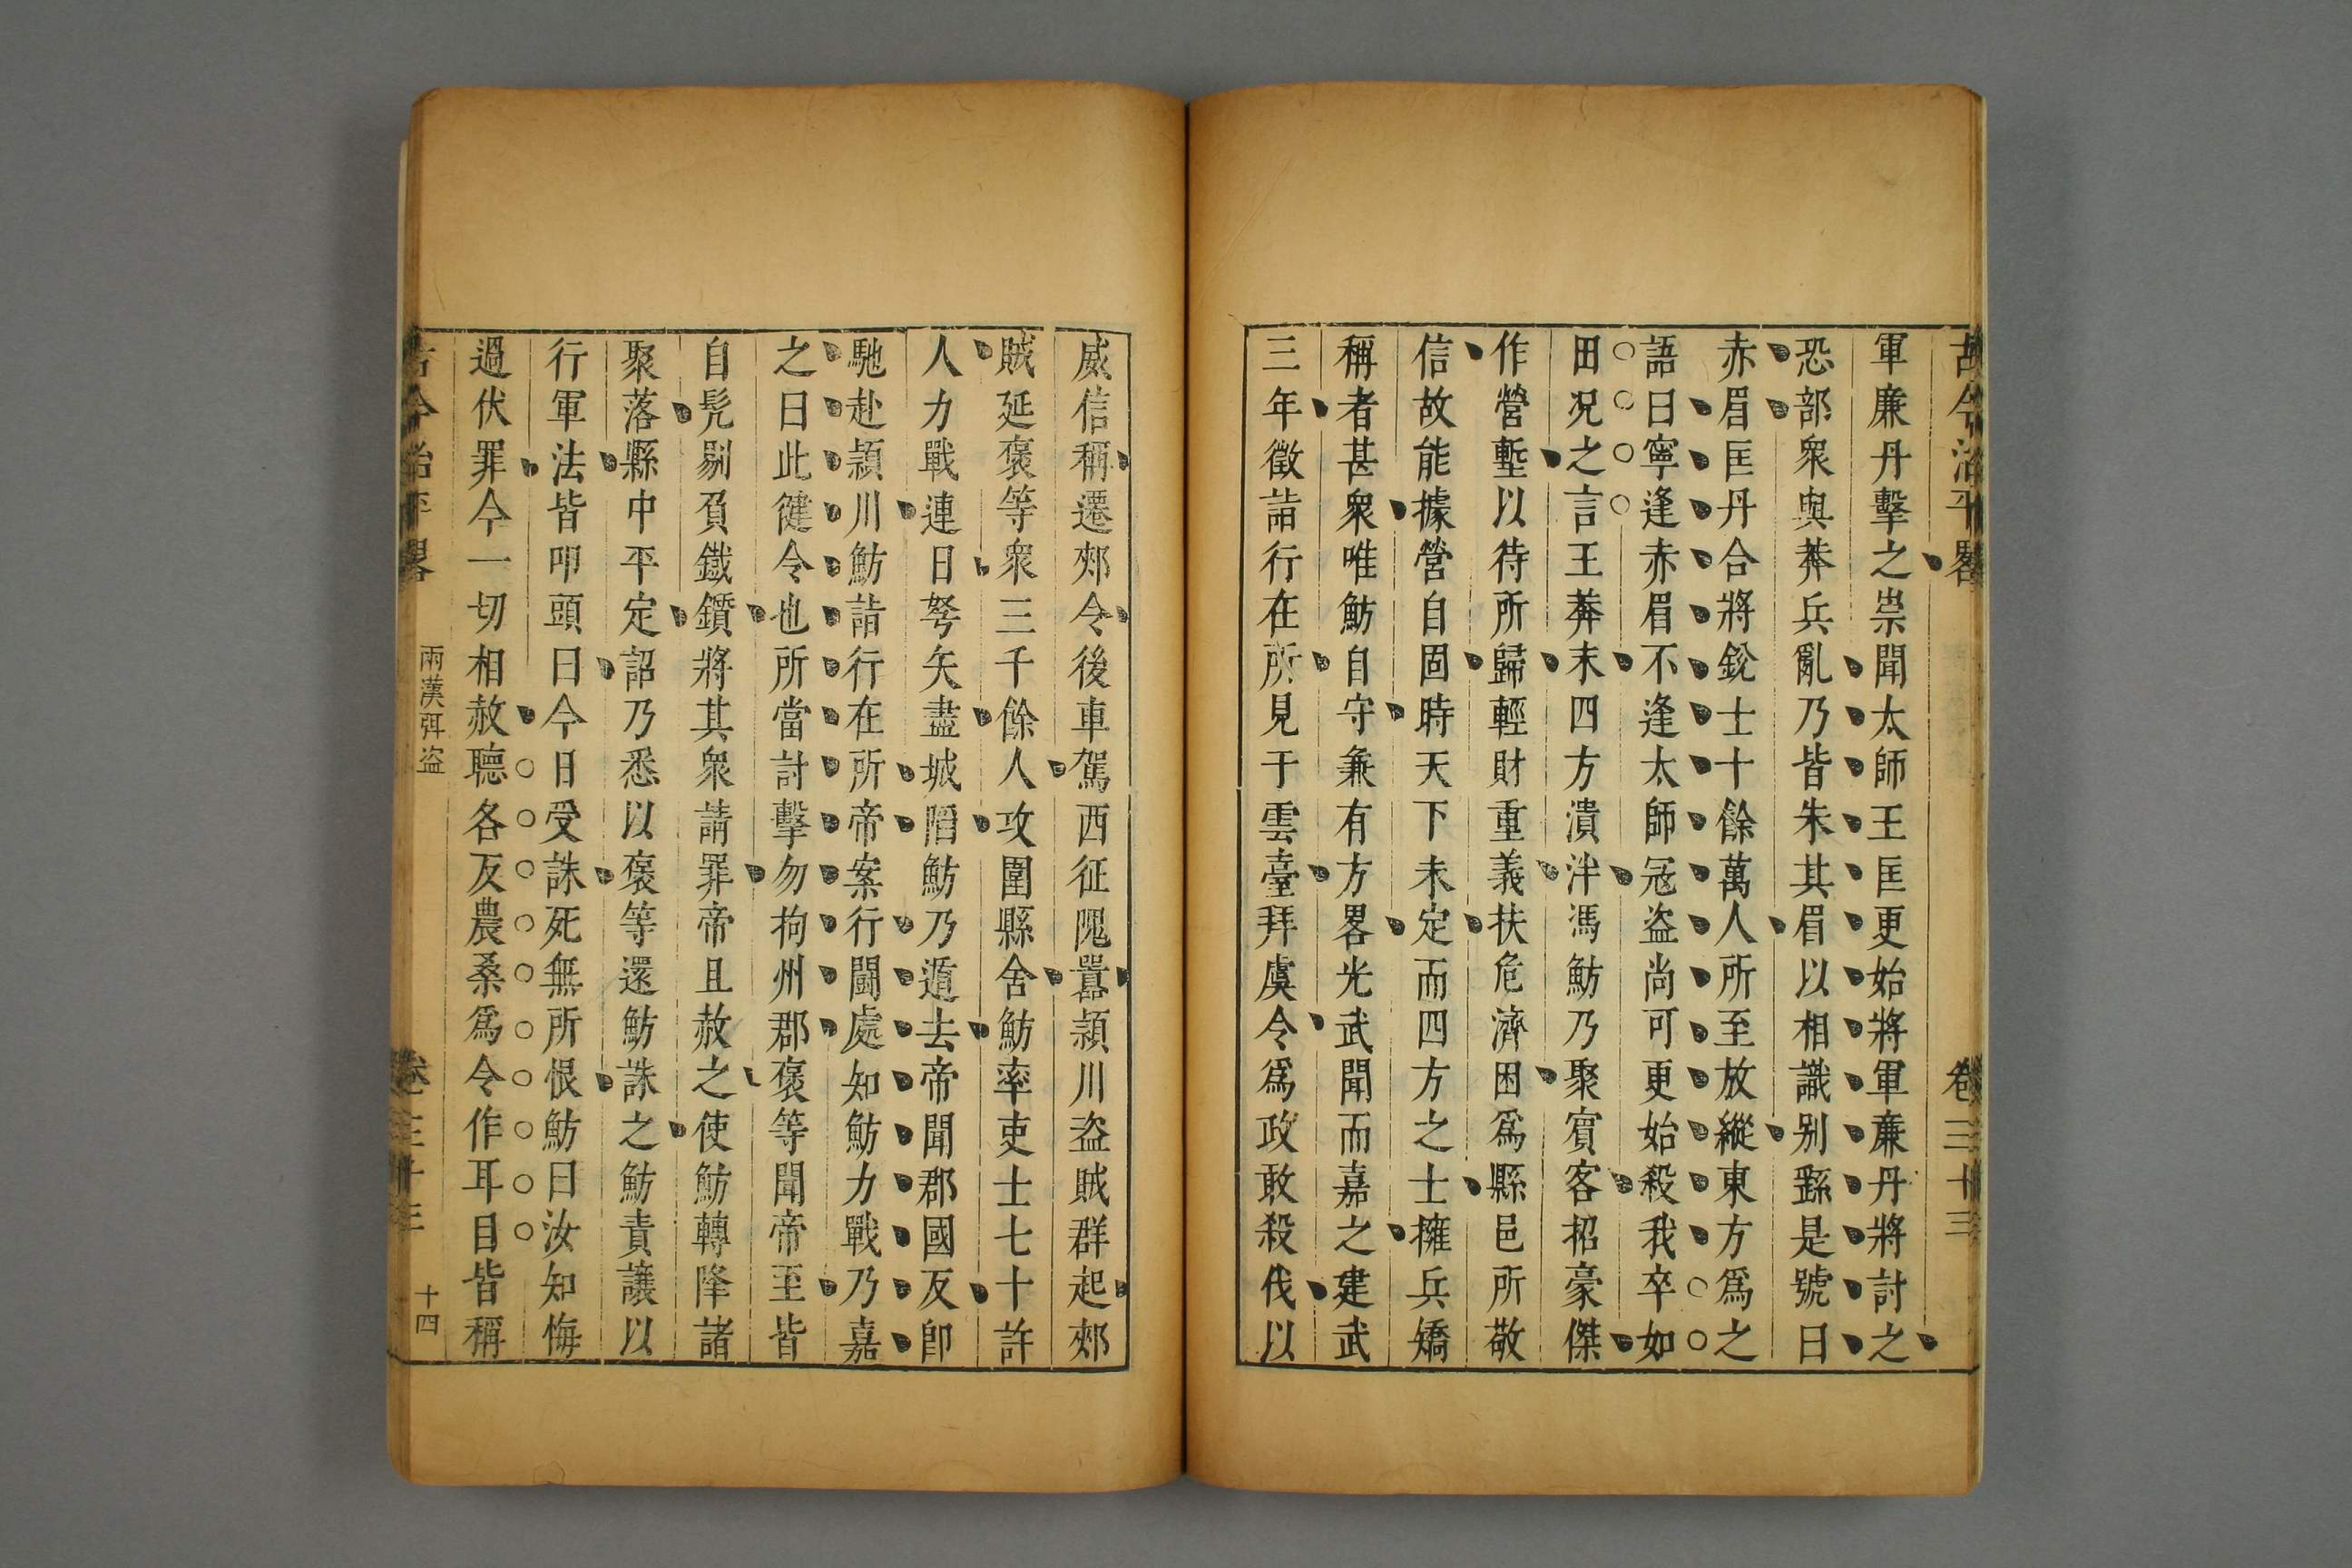 古今治平畧 卷三十三
軍廉丹擊之崇聞太師王匡更始將軍廉丹將討之
恐部衆與莽兵亂乃皆朱其眉以相識别繇是號曰
赤眉匡丹合將銳士十餘萬人所至放縱東方爲之
語曰寧逢赤眉不逢太師太師尚可更始殺我卒如
田况之言王莽末四方潰泮馮魴乃聚賓客招豪傑
作營塹以待所歸輕財重義扶危濟困爲縣邑所敬
信故能據營自固時天下未定而四方之士擁兵矯
稱者甚衆唯魴自守兼有方畧光武聞而嘉之建武
三年徵詣行在所見于雲臺拜虞令爲政敢殺伐以
威信稱遷郟令後車駕西征隗囂潁川盜賊群起郟
賊延褒等衆三千餘人攻圍縣舍魴率吏士七十許
人力戰連日弩矢盡城陷魴乃遁去帝聞郡國反卽
馳赴潁川魴詣行在所帝案行鬭處知魴力戰乃嘉
之曰此健令也所當討擊勿拘州郡褒等聞帝至皆
自髡剔負鐵鑕將其衆請罪帝且赦之使魴轉降諸
聚落縣中平定詔乃悉以褒等還魴誅之魴責讓以
行軍法皆叩頭曰今日受誅死無所恨魴曰汝知悔
過伏罪今一切相赦聽各反農桑爲令作耳目皆稱
古今治平畧 兩漢弭盜 卷三十三 十四